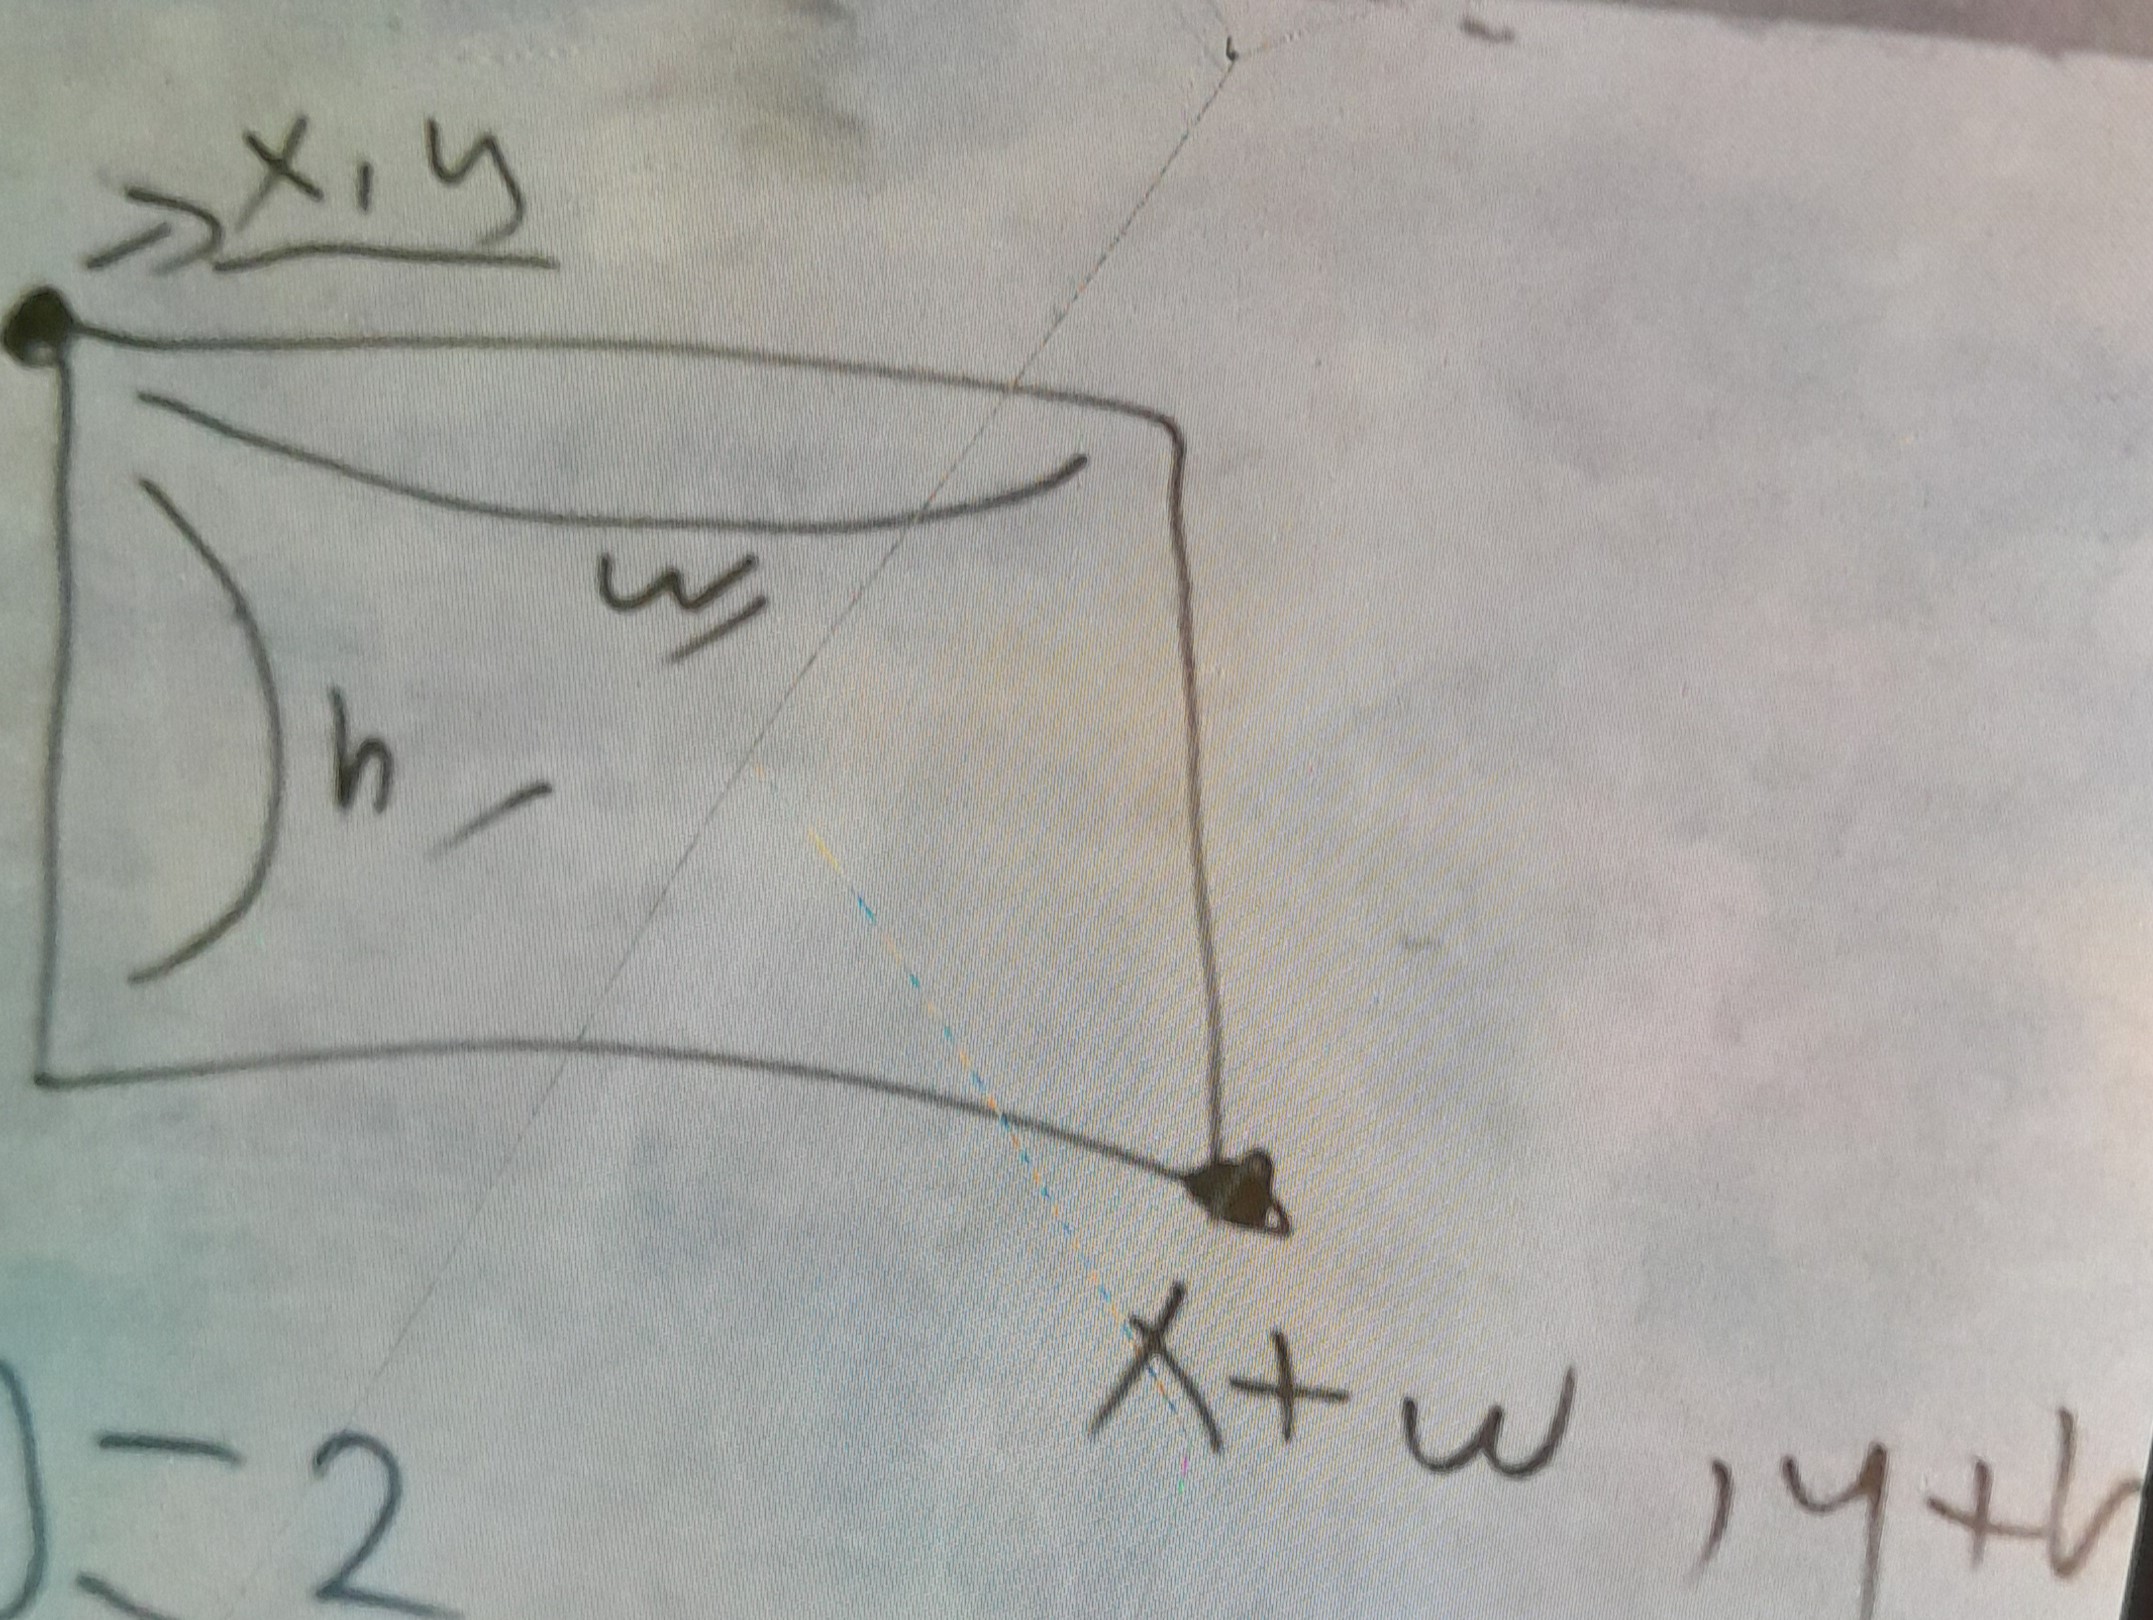 x, y
w
h
x + w , y + h
) = 2